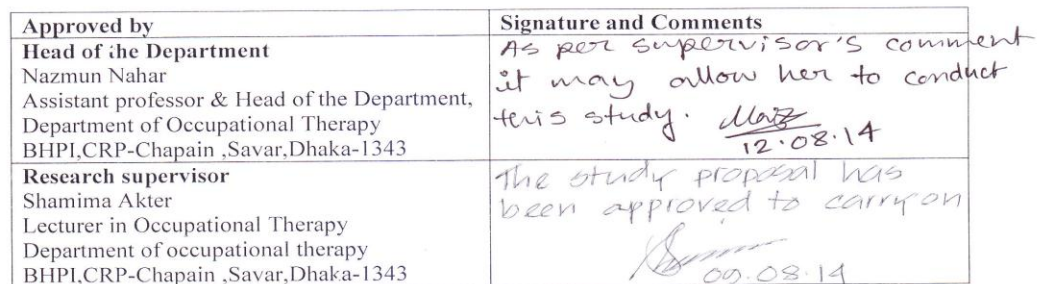 Approved by
Signature and Comments
Head of the Department
Nazmun Nahar
Assistant professor & Head of the Department,
Department of Occupational Therapy
BHPI,CRP-Chapain ,Savar,Dhaka-1343
As per supervisor's comment
it may allow her to conduct
this study.
12.08.14
Research supervisor
Shamima Akter
Lecturer in Occupational Therapy
Department of occupational therapy
BHPI,CRP-Chapain ,Savar,Dhaka-1343
The study proposal has
been approved to carry on
09.08.14